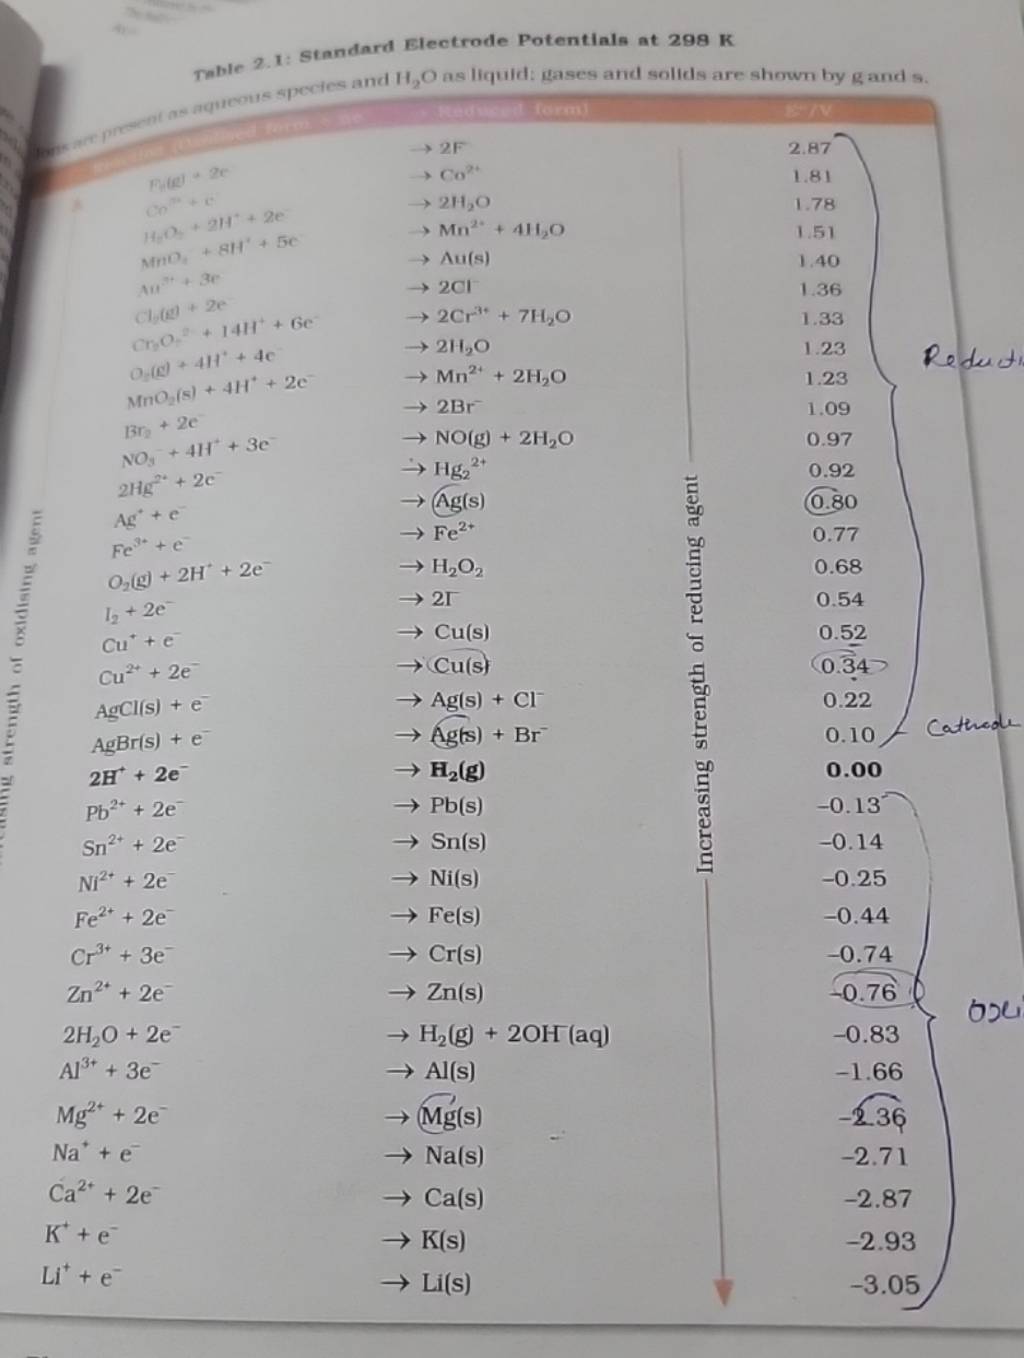 Table 2.1: Standard Electrode Potentials at 298 K
Ions are present as aqueous species and H₂O as liquid; gases and solids are shown by g and s.
Reaction (Oxidised form + ne⁻ → Reduced form) E°/V
F₂(g) + 2e⁻ → 2F⁻ 2.87
Co³⁺ + e⁻ → Co²⁺ 1.81
H₂O₂ + 2H⁺ + 2e⁻ → 2H₂O 1.78
MnO₄⁻ + 8H⁺ + 5e⁻ → Mn²⁺ + 4H₂O 1.51
Au³⁺ + 3e⁻ → Au(s) 1.40
Cl₂(g) + 2e⁻ → 2Cl⁻ 1.36
Cr₂O₇²⁻ + 14H⁺ + 6e⁻ → 2Cr³⁺ + 7H₂O 1.33
O₂(g) + 4H⁺ + 4e⁻ → 2H₂O 1.23
MnO₂(s) + 4H⁺ + 2e⁻ → Mn²⁺ + 2H₂O 1.23
Br₂ + 2e⁻ → 2Br⁻ 1.09
NO₃⁻ + 4H⁺ + 3e⁻ → NO(g) + 2H₂O 0.97
2Hg²⁺ + 2e⁻ → Hg₂²⁺ 0.92
Ag⁺ + e⁻ → Ag(s) 0.80
Fe³⁺ + e⁻ → Fe²⁺ 0.77
O₂(g) + 2H⁺ + 2e⁻ → H₂O₂ 0.68
I₂ + 2e⁻ → 2I⁻ 0.54
Cu⁺ + e⁻ → Cu(s) 0.52
Cu²⁺ + 2e⁻ → Cu(s) 0.34
AgCl(s) + e⁻ → Ag(s) + Cl⁻ 0.22
AgBr(s) + e⁻ → Ag(s) + Br⁻ 0.10
Cathode
2H⁺ + 2e⁻ → H₂(g) 0.00
Pb²⁺ + 2e⁻ → Pb(s) –0.13
Sn²⁺ + 2e⁻ → Sn(s) –0.14
Ni²⁺ + 2e⁻ → Ni(s) –0.25
Fe²⁺ + 2e⁻ → Fe(s) –0.44
Cr³⁺ + 3e⁻ → Cr(s) –0.74
Zn²⁺ + 2e⁻ → Zn(s) –0.76
2H₂O + 2e⁻ → H₂(g) + 2OH⁻(aq) –0.83
Al³⁺ + 3e⁻ → Al(s) –1.66
Mg²⁺ + 2e⁻ → Mg(s) –2.36
Na⁺ + e⁻ → Na(s) –2.71
Ca²⁺ + 2e⁻ → Ca(s) –2.87
K⁺ + e⁻ → K(s) –2.93
Li⁺ + e⁻ → Li(s) –3.05
strength of oxidising agent
Increasing strength of reducing agent